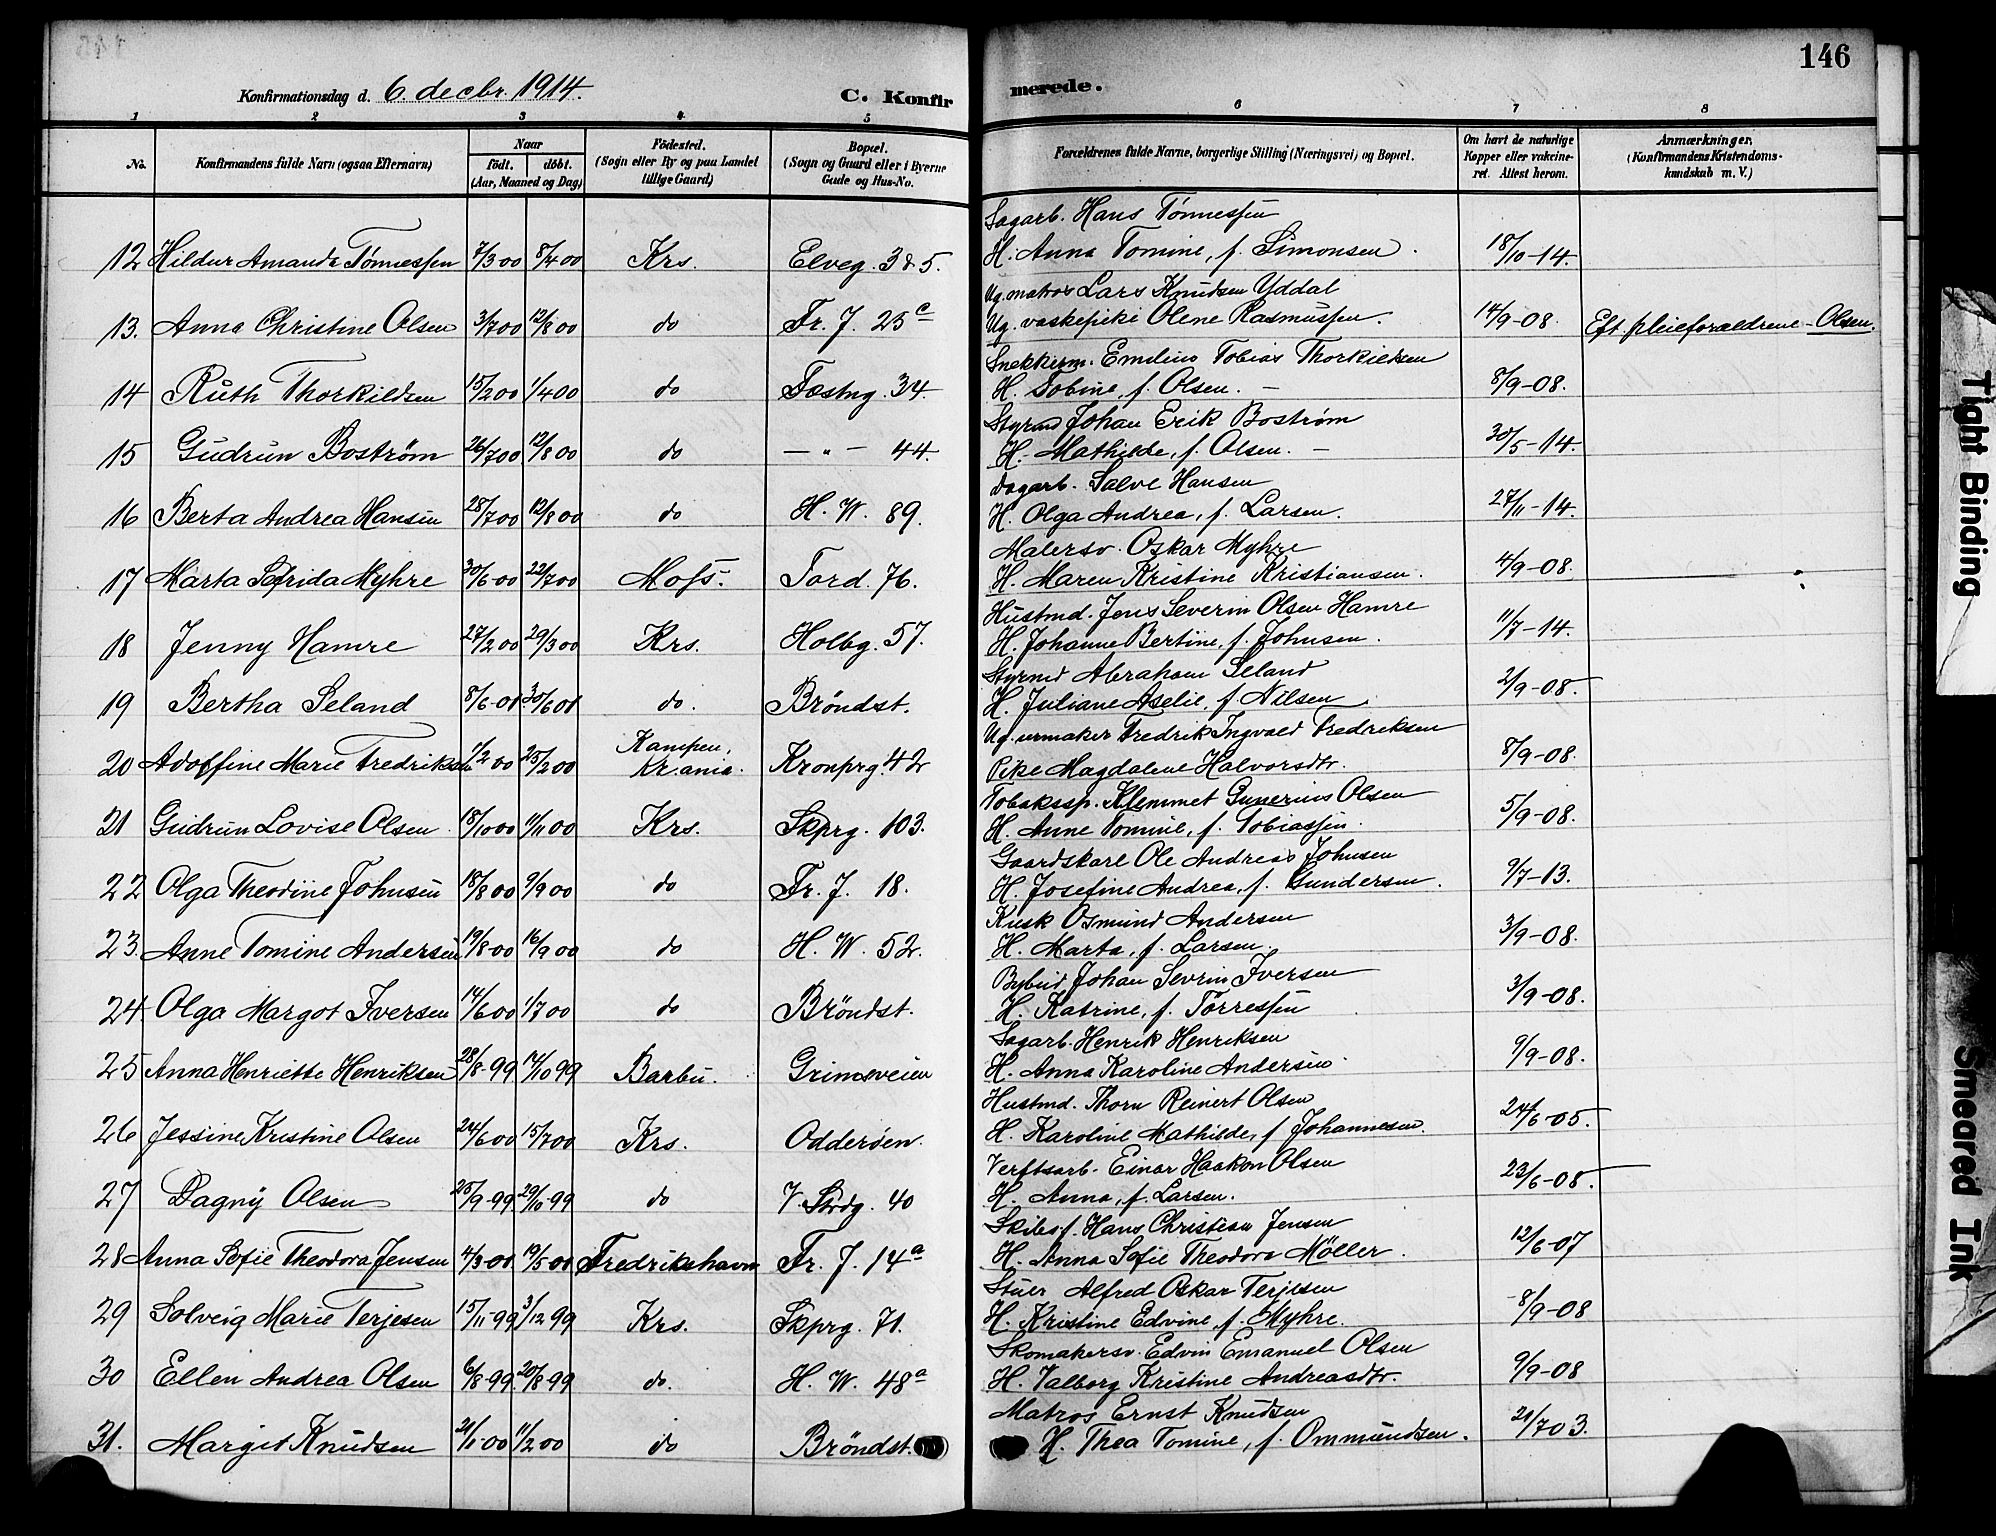 146
Konfirmationsdag d. 6. decbr. 1914.
C. Konfir
merede.
1 2 3 4 5 6 7 8
No.
Konfirmandens fulde Navn (ogsaa Efternavn)
Naar
födt. döbt.
(Aar, Maaned og Dag)
Födested.
(Sogn eller By og paa Landet
tillige Gaard)
Bopæl.
(Sogn og Gaard eller i Byerne
Gade og Hus-No.
Forældrenes fulde Navne, borgerlige Stilling (Næringsvei) og Bopæl.
Om havt de naturlige
Kopper eller vakcine-
ret. Attest herom.
Anmærkninger.
(Konfirmandens Kristendoms-
kundskab m. V.)
Sagarb. Hans Tönnessen
12 Hildur Amanda Tönnessen 7/3 00 8/4 00 Krs. Elveg. 3 & 5. H. Anna Tomine, f. Simonsen. 18/10-14.
Ug. matros Lars Knudsen Yddal
13. Anna Christine Olsen 3/7 00 12/8 00 do Fr. J. 25c Ug. vaskepike Olene Rasmussen. 14/9-08. Eft. pleieforældrene - Olsen.
Snekkerm. Emilius Tobias Thorkildsen
14 Ruth Thorkildsen 15/2 00 1/4 00 do Fæstng. 34. H. Tobine, f. Olsen. - 8/9-08.
Styrmd Johan Erik Boström
15 Gudrun Boström 26/7 00 12/8 00 do - " - 44. H. Mathilde, f. Olsen. - 30/5-14.
Dagarb. Salve Hansen
16 Berta Andrea Hansen 28/7 00 12/8 00 do H. W. 89. H. Olga Andrea, f. Larsen. 27/11-14.
Malersv. Oskar Myhre
17 Marta Sofrida Myhre 30/6 00 22/7 00 Moss. Tord. 76. H. Maren Kristine Kristiansen. 4/9-08.
Hustmd. Jens Severin Olsen Hamre
18 Jenny Hamre 27/2 00 29/3 00 Krs. Holbg. 57. H. Johanne Bertine, f. Johnsen. 11/7-14.
Styrmd Abraham Seland
19 Bertha Seland 8/6-01 30/6 01 do. Bröndst. H. Juliane Aselie, f. Nilsen 2/9-08.
Ug. urmaker Fredrik Ingvald Fredriksen
20 Adolfine Marie Fredriksen 1/2 00 25/2 00 Kampen, Kr.ania. Kronprg. 42 Pike Magdalene Halvorsdtr. 8/9-08.
Tobakssp. Klemmet Gunerius Olsen
21 Gudrun Lovise Olsen 18/10 00 11/11 00 Krs. Skprg. 103. H. Anne Tomine, f. Tobiassen. 5/9-08.
Gaardskarl Ole Andreas Johnsen
22 Olga Theodine Johnsen 18/8 00 9/9 00 do Fr. J. 18. H. Josefine Andrea, f. Gundersen. 9/7-13.
Kusk Osmund Andersen
23. Anne Tomine Andersen 19/8 00 16/9 00 do H. W. 52. H. Marta, f. Larsen. 3/9-08.
Bybud Johan Sevrin Iversen
24. Olga Margot Iversen 14/6 00 1/7 00 do Bröndst. H. Katrine, f. Törressen 3/9-08.
Sagarb. Henrik Henriksen
25 Anna Henriette Henriksen 28/8-99 14/10 99 Barbu. Grimsveien H. Anna Karoline Andersen. 9/9-08.
Hustmd. Thorn Reinert Olsen
26 Jessine Kristine Olsen 24/6 00 15/7 00 Krs. Odderöen. H. Karoline Mathilde, f. Johannesen. 24/6-05.
Verftsarb. Einar Haakon Olsen
27 Dagny Olsen 25/9-99 29/10-99 do V. Strdg. 40 H. Anna, f. Larsen. 23/6-08.
Skibsf. Hans Christian Jensen
28 Anna Sofie Theodora Jensen 4/3-00 19/5 00 Fredrikshavn Fr. J. 14a H. Anna Sofie Theodora Möller. 12/6-07
Stuer Alfred Oskar Terjesen
29 Solveig Marie Terjesen 15/11-99 3/12 99 Krs. Skprg. 71. H. Kristine Edvine, f. Myhre. 8/9-08
Skomakersv. Edvin Emanuel Olsen
30 Ellen Andrea Olsen 6/8-99 20/8-99 do. H. W. 48a H. Valborg Kristine Andreasdtr. 9/9-08
Matros Ernst Knudsen
31. Margit Knudsen 21/1-00 11/2 00 do Bröndst. H. Thea Tomine, f. Ommundsen. 21/7 03.
Tight Binding
Smeared Ink